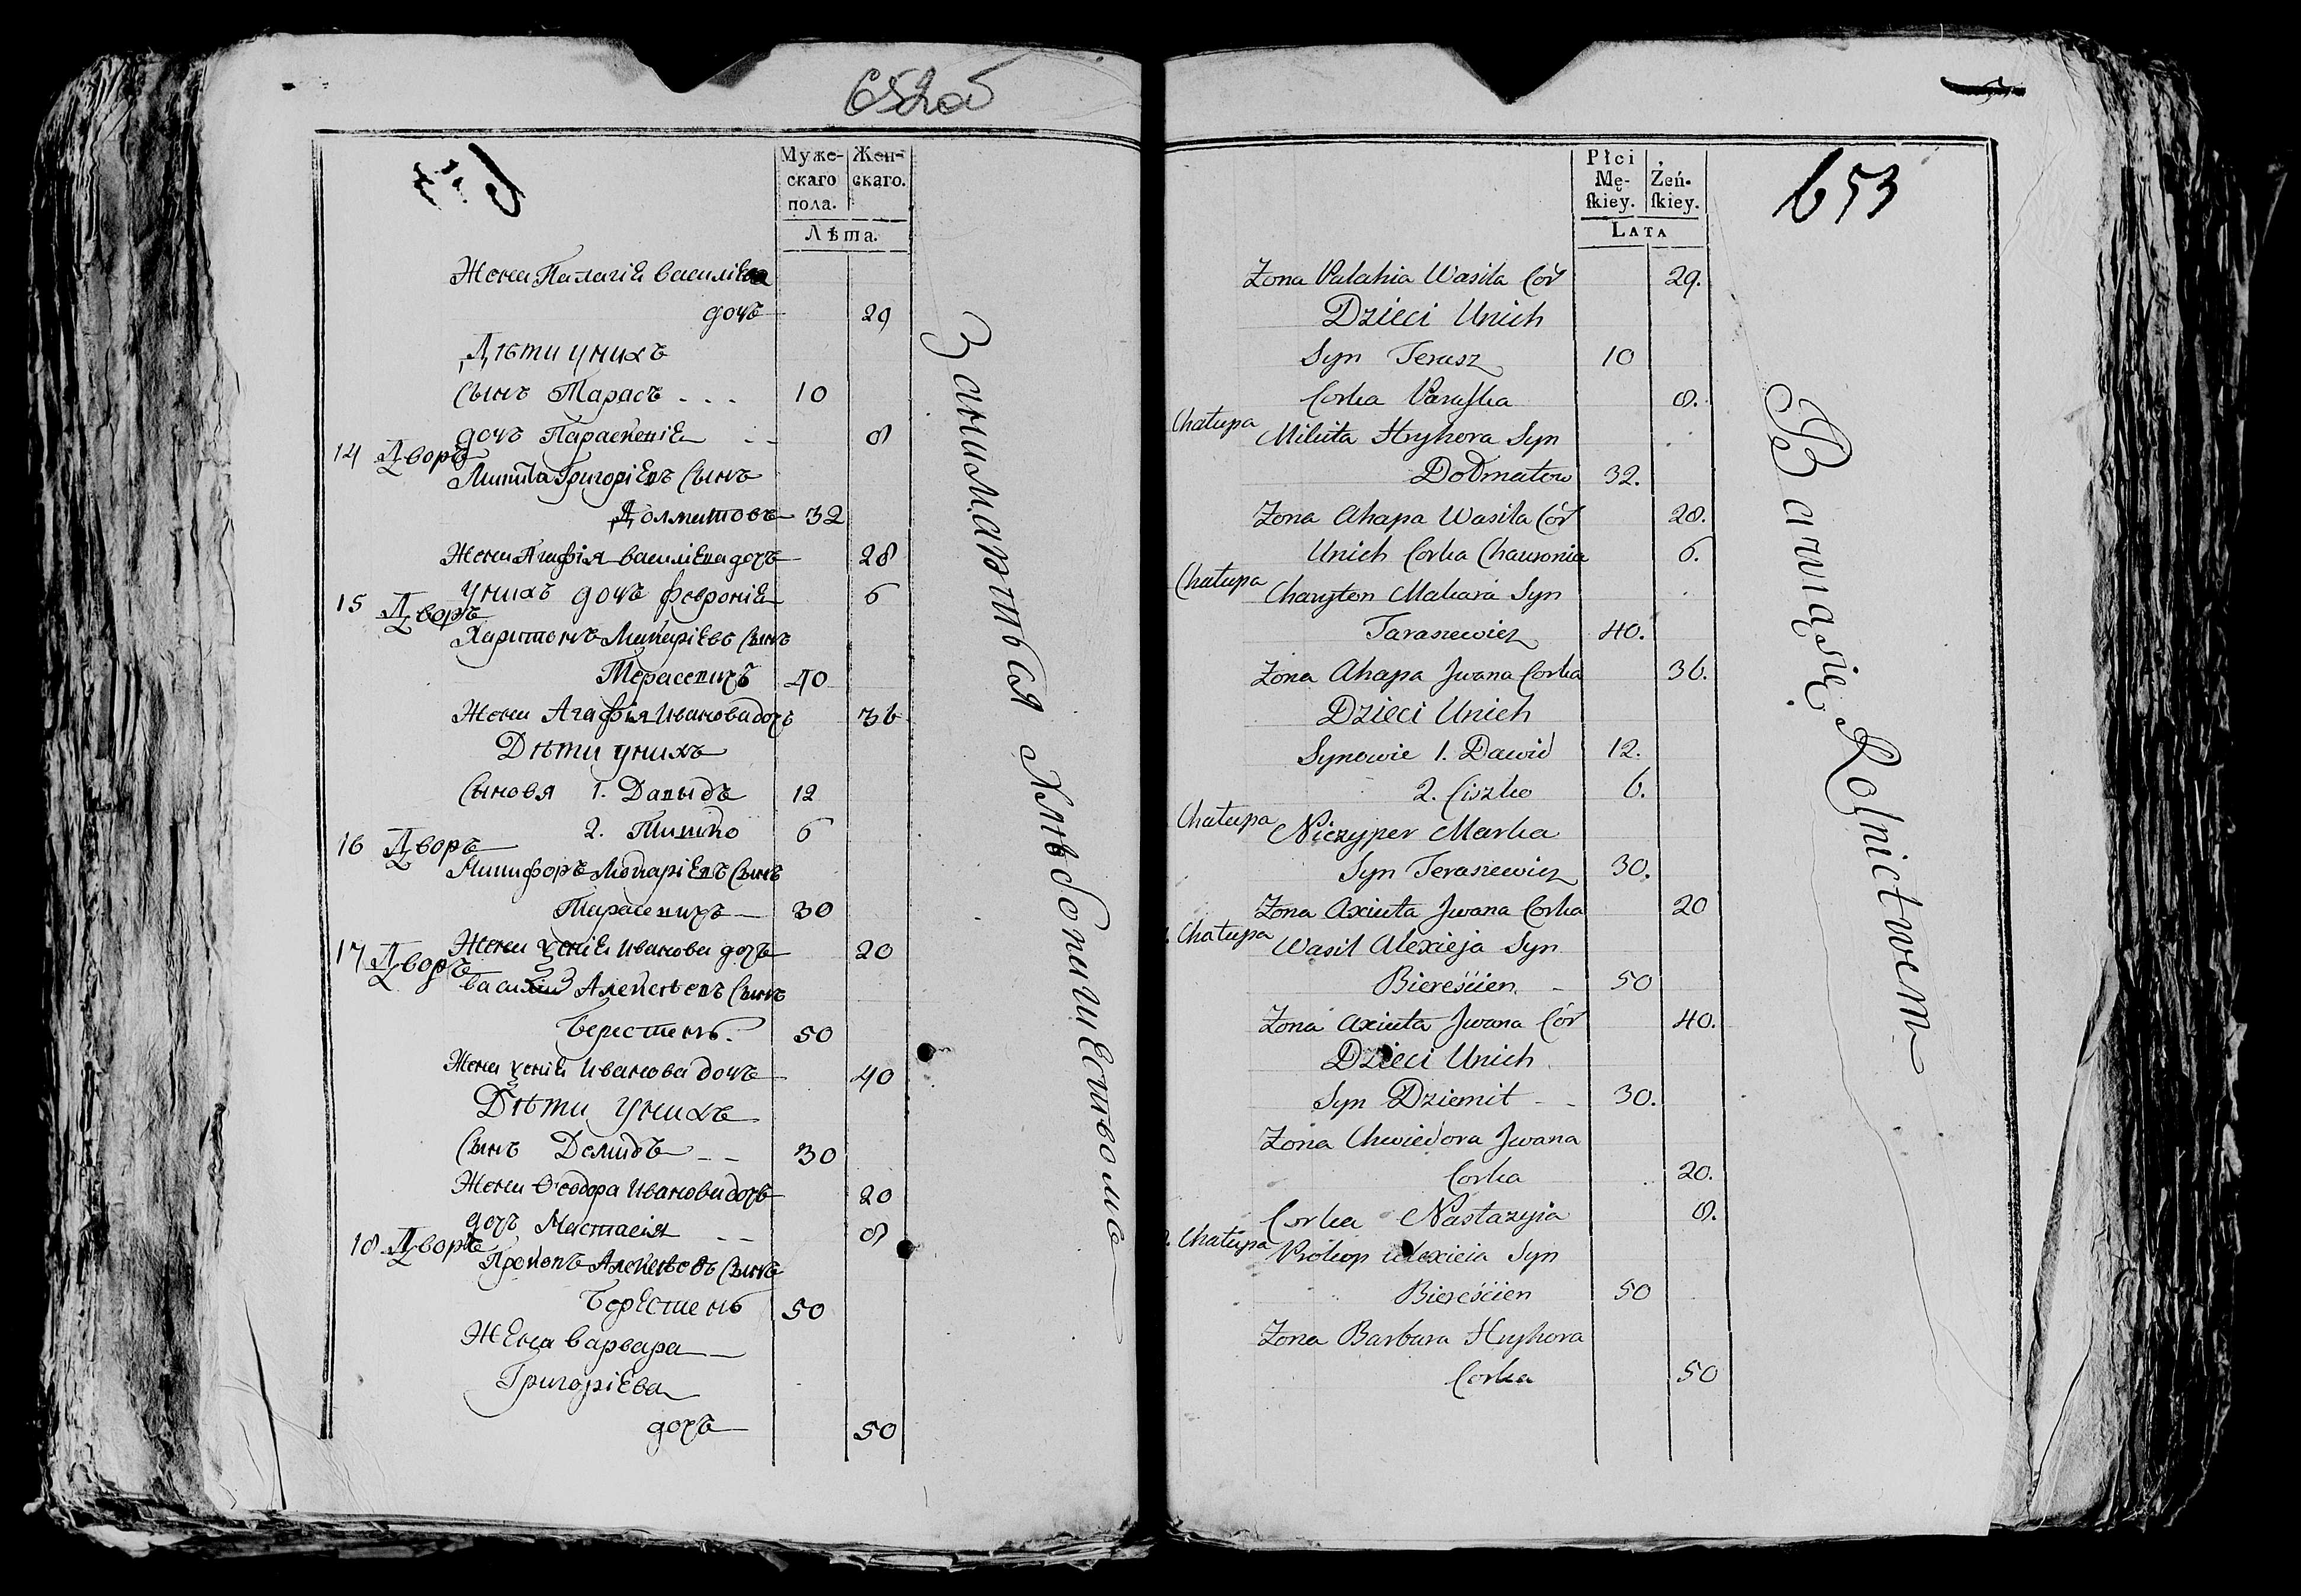 652об
Муже-
скаго
пола.
Жен-
скаго.
Лѣта.
Жена Палагіа василіева
дочь 29
Дѣти унихъ
Сынъ Тарасъ - - - 10
дочь Параскевіа - - 8
14 Дворъ
Микита Григоріевъ Сынъ
Долматовъ 32
Жена Агафія василіева дочь 28
Унихъ дочь февроніа 6
15 Дворъ
Харитонъ Макаріевъ Сынъ
Тарасевичъ 40
Жена Агафія Иванова дочь 36
Дѣти унихъ
Сыновя 1. Давыдъ 12
2. Тишко 6
16 Дворъ
Никифоръ Макаріевъ Сынъ
Тарасевичъ 30
Жена Ксеніа Иванова дочь 20
17 Дворъ
василій Алексѣевъ Сынъ
Берестень. 50
Жена Ксеніа Иванова дочь 40
Дѣти Унихъ
Сынъ Демидъ - - 30
Жена Ѳеодора Иванова дочь 20
дочь Настасія - - 8
18 Дворъ
Прокопъ Алексѣевъ Сынъ
Берестень 50
Жена варвара
Григоріева
дочь 50
Занимаютъся хлѣбопашествомъ
Płci
Mę-
ſkiey.
Żeń-
ſkiey.
LATA
653
Zona Palahia Wasila Cor 29.
Dzieci Unich
Syn Terasz 10
Corka Paraſka 8.
Chałupa
Mikita Hryhora Syn
Dołmatow 32.
Zona Ahapa Wasila Cor 28.
Unich Corka Chawronia 6.
Chałupa
Charyton Makara Syn
Taraszewicz 40.
Zona Ahapa Jwana Corka 36.
Dzieci Unich
Synowie 1. Dawid 12.
2. Ciszko 6.
Chałupa
Niczyper Marka
Syn Teraszewicz 30.
Zona Axiuta Jwana Corka 20
Chałupa
Wasil Alexieja Syn
Biereścien. - 50
Zona Axiuta Jwana Cór 40.
Dzieci Unich
Syn Dziemit - - 30.
Zona Chwiedora Jwana
Corka 20.
Corka Nastazyia 8.
Chałupa
Prokop Alexieia Syn
Biereścien 50
Zona Barbara Hryhora
Corka 50
Bawiąsię Rolnictwem